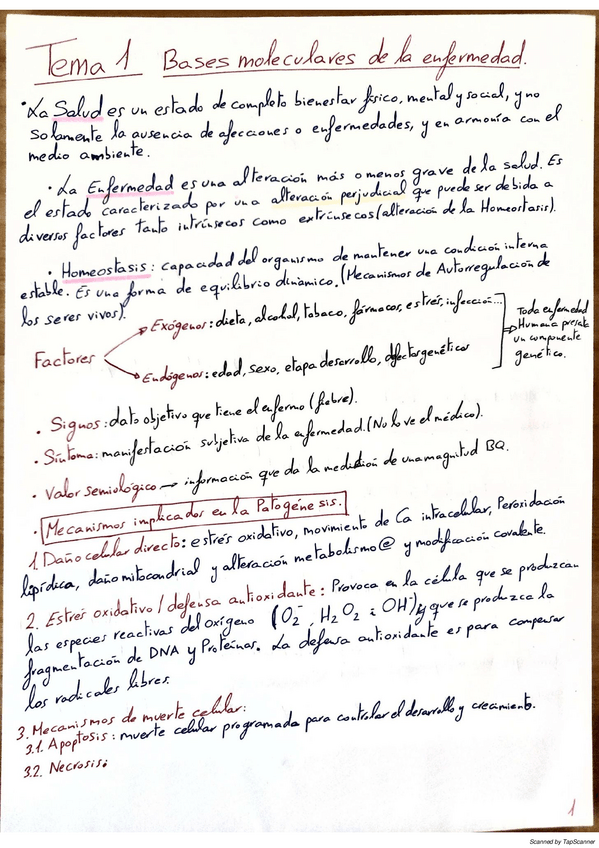 Tema 1 Bases moleculares de la enfermedad.
· La Salud es un estado de completo bienestar físico, mental y social, y no
solamente la ausencia de afecciones o enfermedades, y en armonía con el
medio ambiente.
· La Enfermedad es una alteración más o menos grave de la salud. Es
el estado caracterizado por una alteración perjudicial que puede ser debida a
diversos factores tanto intrínsecos como extrínsecos (alteración de la Homeostasis).
· Homeostasis: capacidad del organismo de mantener una condición interna
estable. Es una forma de equilibrio dinámico. (Mecanismos de Autorregulación de
los seres vivos).
Factores
Exógenos: dieta, alcohol, tabaco, fármacos, estrés, infección...
Endógenos: edad, sexo, etapa desarrollo, defectos genéticos
Toda enfermedad
Humana presenta
un componente
genético.
· Signos: dato objetivo que tiene el enfermo (fiebre).
· Síntoma: manifestación subjetiva de la enfermedad. (No lo ve el médico).
· Valor semiológico → información que da la medición de una magnitud BQ.
· Mecanismos implicados en la Patogénesis.
1. Daño celular directo: estrés oxidativo, movimiento de Ca intracelular, Peroxidación
lipídica, daño mitocondrial y alteración metabolismo @ y modificación covalente.
2. Estrés oxidativo / defensa antioxidante: Provoca en la célula que se produzcan
las especies reactivas del oxígeno (O2⁻, H2O2 i OH⁻) y que se produzca la
fragmentación de DNA y Proteínas. La defensa antioxidante es para compensar
los radicales libres.
3. Mecanismos de muerte celular:
3.1. Apoptosis: muerte celular programada para controlar el desarrollo y crecimiento.
3.2. Necrosis:
1
Scanned by TapScanner